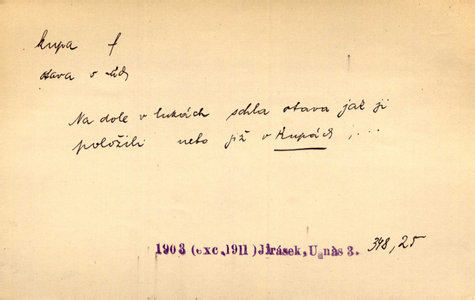 kupa f
otava v
Na dole v lukách schla otava jak ji
položili nebo již v kupách ; ...
1903 (exc. 1911) Jirásek, U nás 3. 348,25